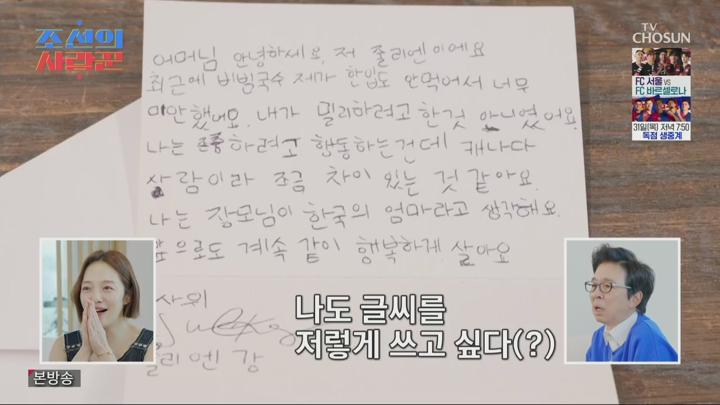 조선의
사랑꾼
TV
CHOSUN
FC 서울 vs
FC 바르셀로나
31일(목) 저녁 7:50
독점 생중계
어머님 안녕하세요. 저 줄리엔이에요
최근에 비빔국수 제가 한입도 안먹어서 너무
미안했네요. 내가 밀리하려고 한것 아니였어요.
나는 존중하려고 행동하는건데 캐나다
사람이라 조금 차이 있는 것 같아요.
나는 장모님이 한국의 엄마라고 생각해요.
앞으로도 계속 같이 행복하게 살아요
사위
줄리엔 강
나도 글씨를
저렇게 쓰고 싶다(?)
본방송